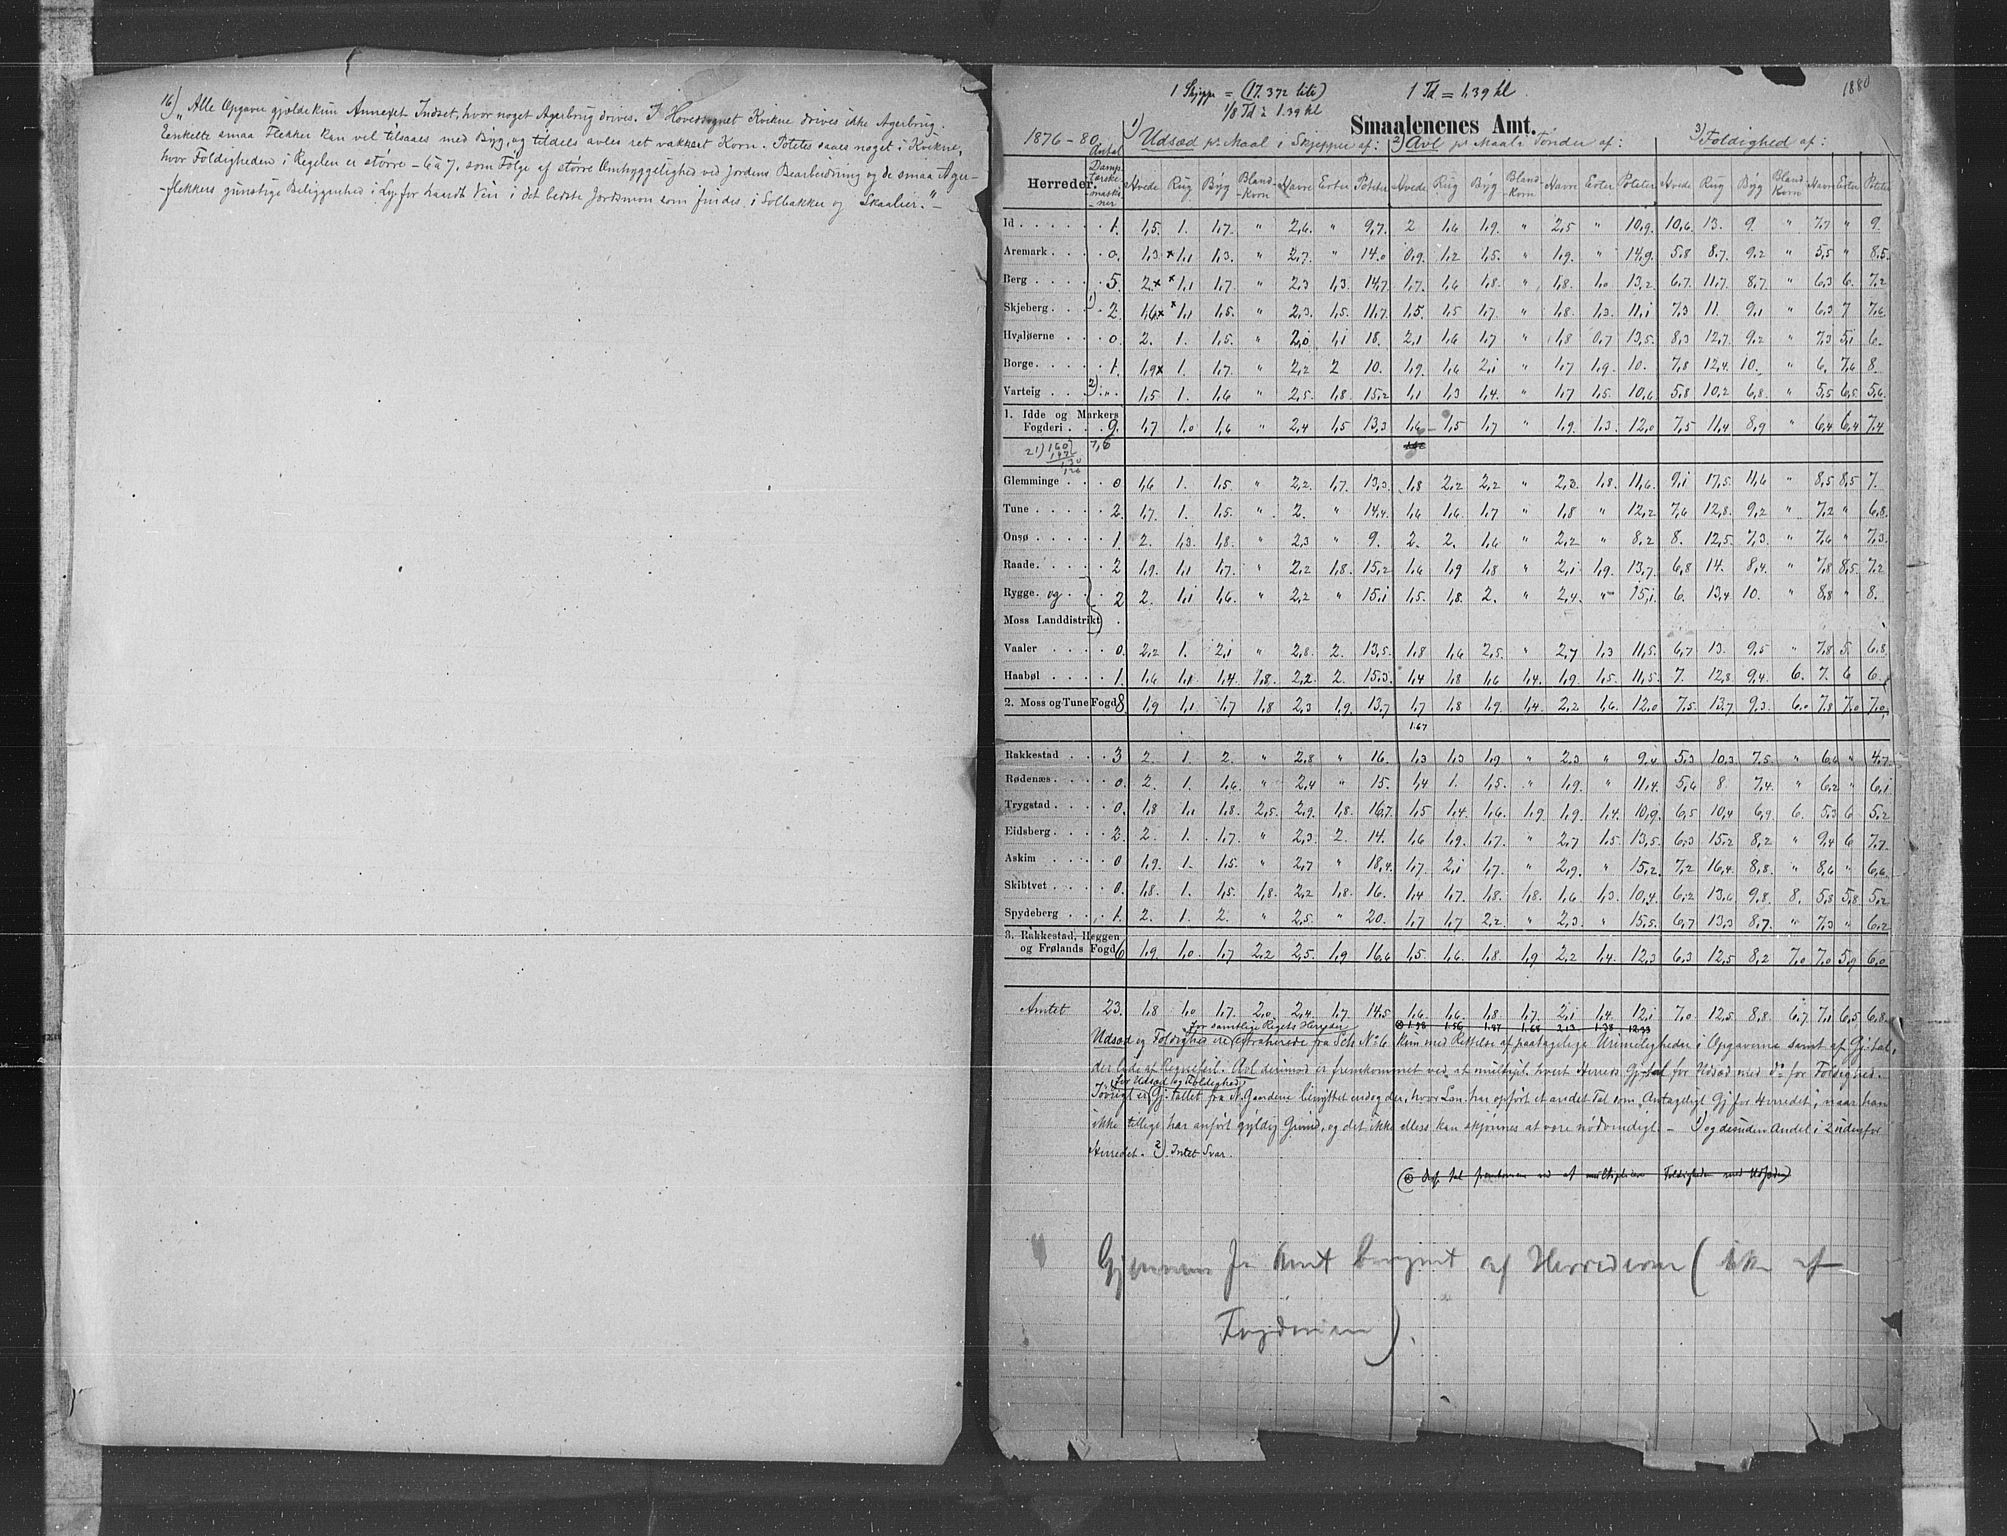 16) "Alle Opgaver gjælde kun Annexet Indset, hvor noget Agerbrug drives. I Hovedsognet Kvikne drives ikke Agerbrug.
Enkelte smaa Flekker kan vel tilsaaes med Byg, og tildels avles ret vakkert Korn. Potetes saaes noget i Kvikne,
hvor Foldigheden i Regelen er større – 6 à 7, som Følge af større Omhyggelighed ved Jordens Bearbeidning og de smaa Ager-
-flekkers gunstige Beliggenhed i Ly for haardt Veir i det bedste Jordsmon som findes i Solbakker og Skaalier." –
1880
1 Skjeppe = (17.372 litr) 1 Td = 1,39 hl
1/8 Td à 1.39 hl
Smaalenenes Amt.
1876-80. Antal 1) Udsæd pr Maal i Skjepper af: 2) Avl pr Maal i Tønder af: 3) Foldighed af:
Herreder. Damptærskemaskiner Hvede Rug Byg Blandkorn Havre Erter Poteter Hvede Rug Byg Blandkorn Havre Erter Poteter Hvede Rug Byg Blandkorn Havre Erter Poteter
Id 1. 1,5. 1. 1,7. " 2,6. " 9,7. 2 1,6 1,9. " 2,5 " 10,9. 10,6. 13. 9. " 7,7 " 9.
Aremark 0. 1,3 × 1,1 1,3. " 2,7. " 14.0 0,9. 1,2 1,5. " 1,9. " 14,9. 5.8 8,7. 9,2 " 5,5 " 8,5.
Berg 5. 2.× × 1,1 1,7. " 2,3 1,3. 14,7 1,7. 1,6 1,8. " 1,8. 1,0 13,2. 6,7. 11,7. 8,7. " 6,3 6. 7,2
Skjeberg 1) 2. 1,6× × 1,1 1,5. " 2,3. 1,5. 11,7. 1,5. 1,5 1,7. " 1,8. 1,3. 11,1 7,3 11. 9,1 " 6,3 7 7,6.
Hvaløerne 0. 2. 1. 1,5. " 2,0 1,1 18. 2,1 1,6 1,7 " 1,8 0,7 13,5. 8,3 12,7. 9,2 " 7,3 5,1 6.
Borge 1. 1,9× 1. 1,7. " 2,2 2 10. 1,9. 1,6 2,1 " 1,7 1,9. 10. 7,8 12,4. 10. " 6, 7,6 8.
Varteig 2) " 1,5 1. 1,6 " 2,5. 1,8 15,2 1,1 1,3 1,4. " 1,7 1,5. 10,6 5,8 10,2 6,8. " 5,5 6,5 5,6
1. Idde og Markers
Fogderi 9. 1,7 1,0 1,6 " 2,4 1,5 13,3 1,6 1,5 1,7 " 1,9. 1,3. 12,0 7,5 11,4 8,9 " 6,4 6,4 7,4
7,8
Glemminge 0 1,6 1. 1,5 " 2,2. 1,7. 13,3. 1,8 2,2 2,2 " 2,3. 1,8. 11,6. 9,1 17,5. 11,6 " 8,5 8,5 7.
Tune 2. 1,7. 1. 1,5. " 2. " 14,4. 1,6 1,6. 1,7 " 1,8 " 12,2 7,6 12,8. 9,2 " 7,2 " 6,8.
Onsø 1. 2. 1,3. 1,8. " 2,3 " 9. 2. 2. 1,6 " 2,2 " 8,2 8. 12,5. 7,3. " 7,6 " 7,3.
Raade 2 1,9. 1,1 1,7. " 2,2 1,8. 15,2 1,6 1,9 1,8 " 2,1 1,9. 13,7. 6,8 14. 8,4. " 7,8 8,5. 7,2
Rygge og 2 2. 1,1 1,6. " 2,2 " 15,1 1,5. 1,8. 2. " 2,4. " 15,1. 6. 13,4 10. " 8,8 " 8.
Moss Landdistrikt
Vaaler 0. 2,2 1. 2,1 " 2,8. 2. 13,5. 1,8 1,6 2,5. " 2,7 1,3 11,5. 6,7 13. 9,5 " 7,8 5. 6,8.
Haabøl 1. 1,6 1,1 1,4. 1,8. 2,2. 2. 15,3. 1,4 1,8 1,6 1,4. 1,9. 1,5. 11,5. 7. 12,8. 9,4 6. 7. 6 6.
2. Moss og Tune Fogd. 8. 1,9 1,1 1,7 1,8 2,3 1,9. 13,7 1,7 1,8 1,9. 1,4 2,2 1,6. 12,0 7,5. 13,7 9,3. 6,0 7,8 7,0 7,0
1.67
Rakkestad 3 2. 1. 2. " 2,8 " 16. 1,3 1,3 1,9 " 2,3 " 9,4 5,3 10,3 7,5. " 6,6 " 4,7.
Rødenæs 0. 2. 1. 1,6. " 2,4 " 15. 1,4 1. 1,5. " 1,9. " 11,4. 5,6 8. 7,4 " 6,2 " 6,1
Trygstad 0. 1,8 1,1 1,8. 2,5. 2,9. 1,8. 16,7. 1,5 1,4. 1,6. 1,9 1,9. 1,4. 10,9. 6,5 10,4 6,9 6. 5,3 6 5,2
Eidsberg 2. 2. 1. 1,7. " 2,3 2. 14. 1,6 1,9. 1,7. " 2,7 1,5 13,5. 6,3 15,2 8,2 " 9,4 6 7,7.
Askim 0 1,9. 1. 1,5. " 2,7 " 18,4. 1,7 2,1 1,7. " 2,9. " 15,2. 7,2 16,4. 8,8. " 8,6 " 6,6.
Skibtvet 0. 1,8. 1. 1,5. 1,8. 2,2 1,8. 16. 1,4 1,7. 1,8. 1,8. 1,6 1,3. 10,4. 6,2 13,6 9,8 8. 5,8 5,8 5,2
Spydeberg 1. 2. 1. 2. " 2,5. " 20. 1,7 1,7 2,2 " 2,3. " 15,5 6,7 13,3 8,7. " 7,3 " 6,2
3. Rakkestad, Heggen
og Frølands Fogd. 6 1,9. 1,0 1,7 2,2 2,5. 1,9 16,6 1,5 1,6. 1,8. 1,9 2,2 1,4. 12,3 6,3 12,5 8,2 7,0 7,0 5,9 6,0
Amtet 23. 1,8 1,0 1,7. 2,0. 2,4. 1,7. 14,5 1,6. 1,6. 1,8. 1,7. 2,1 1,4. 12,1 7,0 12,5 8,8 6,7. 7,1 6,5 6,8.
for samtlige Rigets Herreder 1.38 1.87 1.68 2.13 1.38
Udsæd og Foldighed ere extraherede fra Sch. No 6 kun med Rettelse af paatagelige Urimeligheder i Opgaverne samt af Gj.tal,
der lede af Regnefeil. Avl derimod er fremkommet ved at multipl. hvert Herreds Gj.tal for Udsæd med Do for Foldighed.
for Udsæd og Foldighed
Iøvrigt er Gj.tallet fra benyttet endog der, hvor Len. har opført et andet Tal som Antageligt Gj for Herredet, naar han
ikke tillige har anført gyldig Grund, og det ikke ellers kan skjønnes at være nødvendigt. – 1) og desuden Andel i 2 udenfor
Herredet. 2) Intet Svar.
tal fremkommer ved at multiplicere Foldigheden med Udsæden)
Gjennem for Amt beregnet af Herrederne (ikke af
Fogderierne).